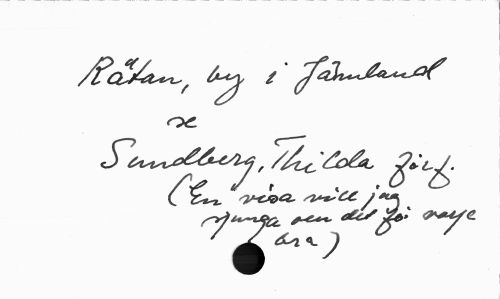 Rätan, by i Jämtland
se
Sundberg, Thilda förf.
(En visa vill jag
sjunga om det för varje
bra)